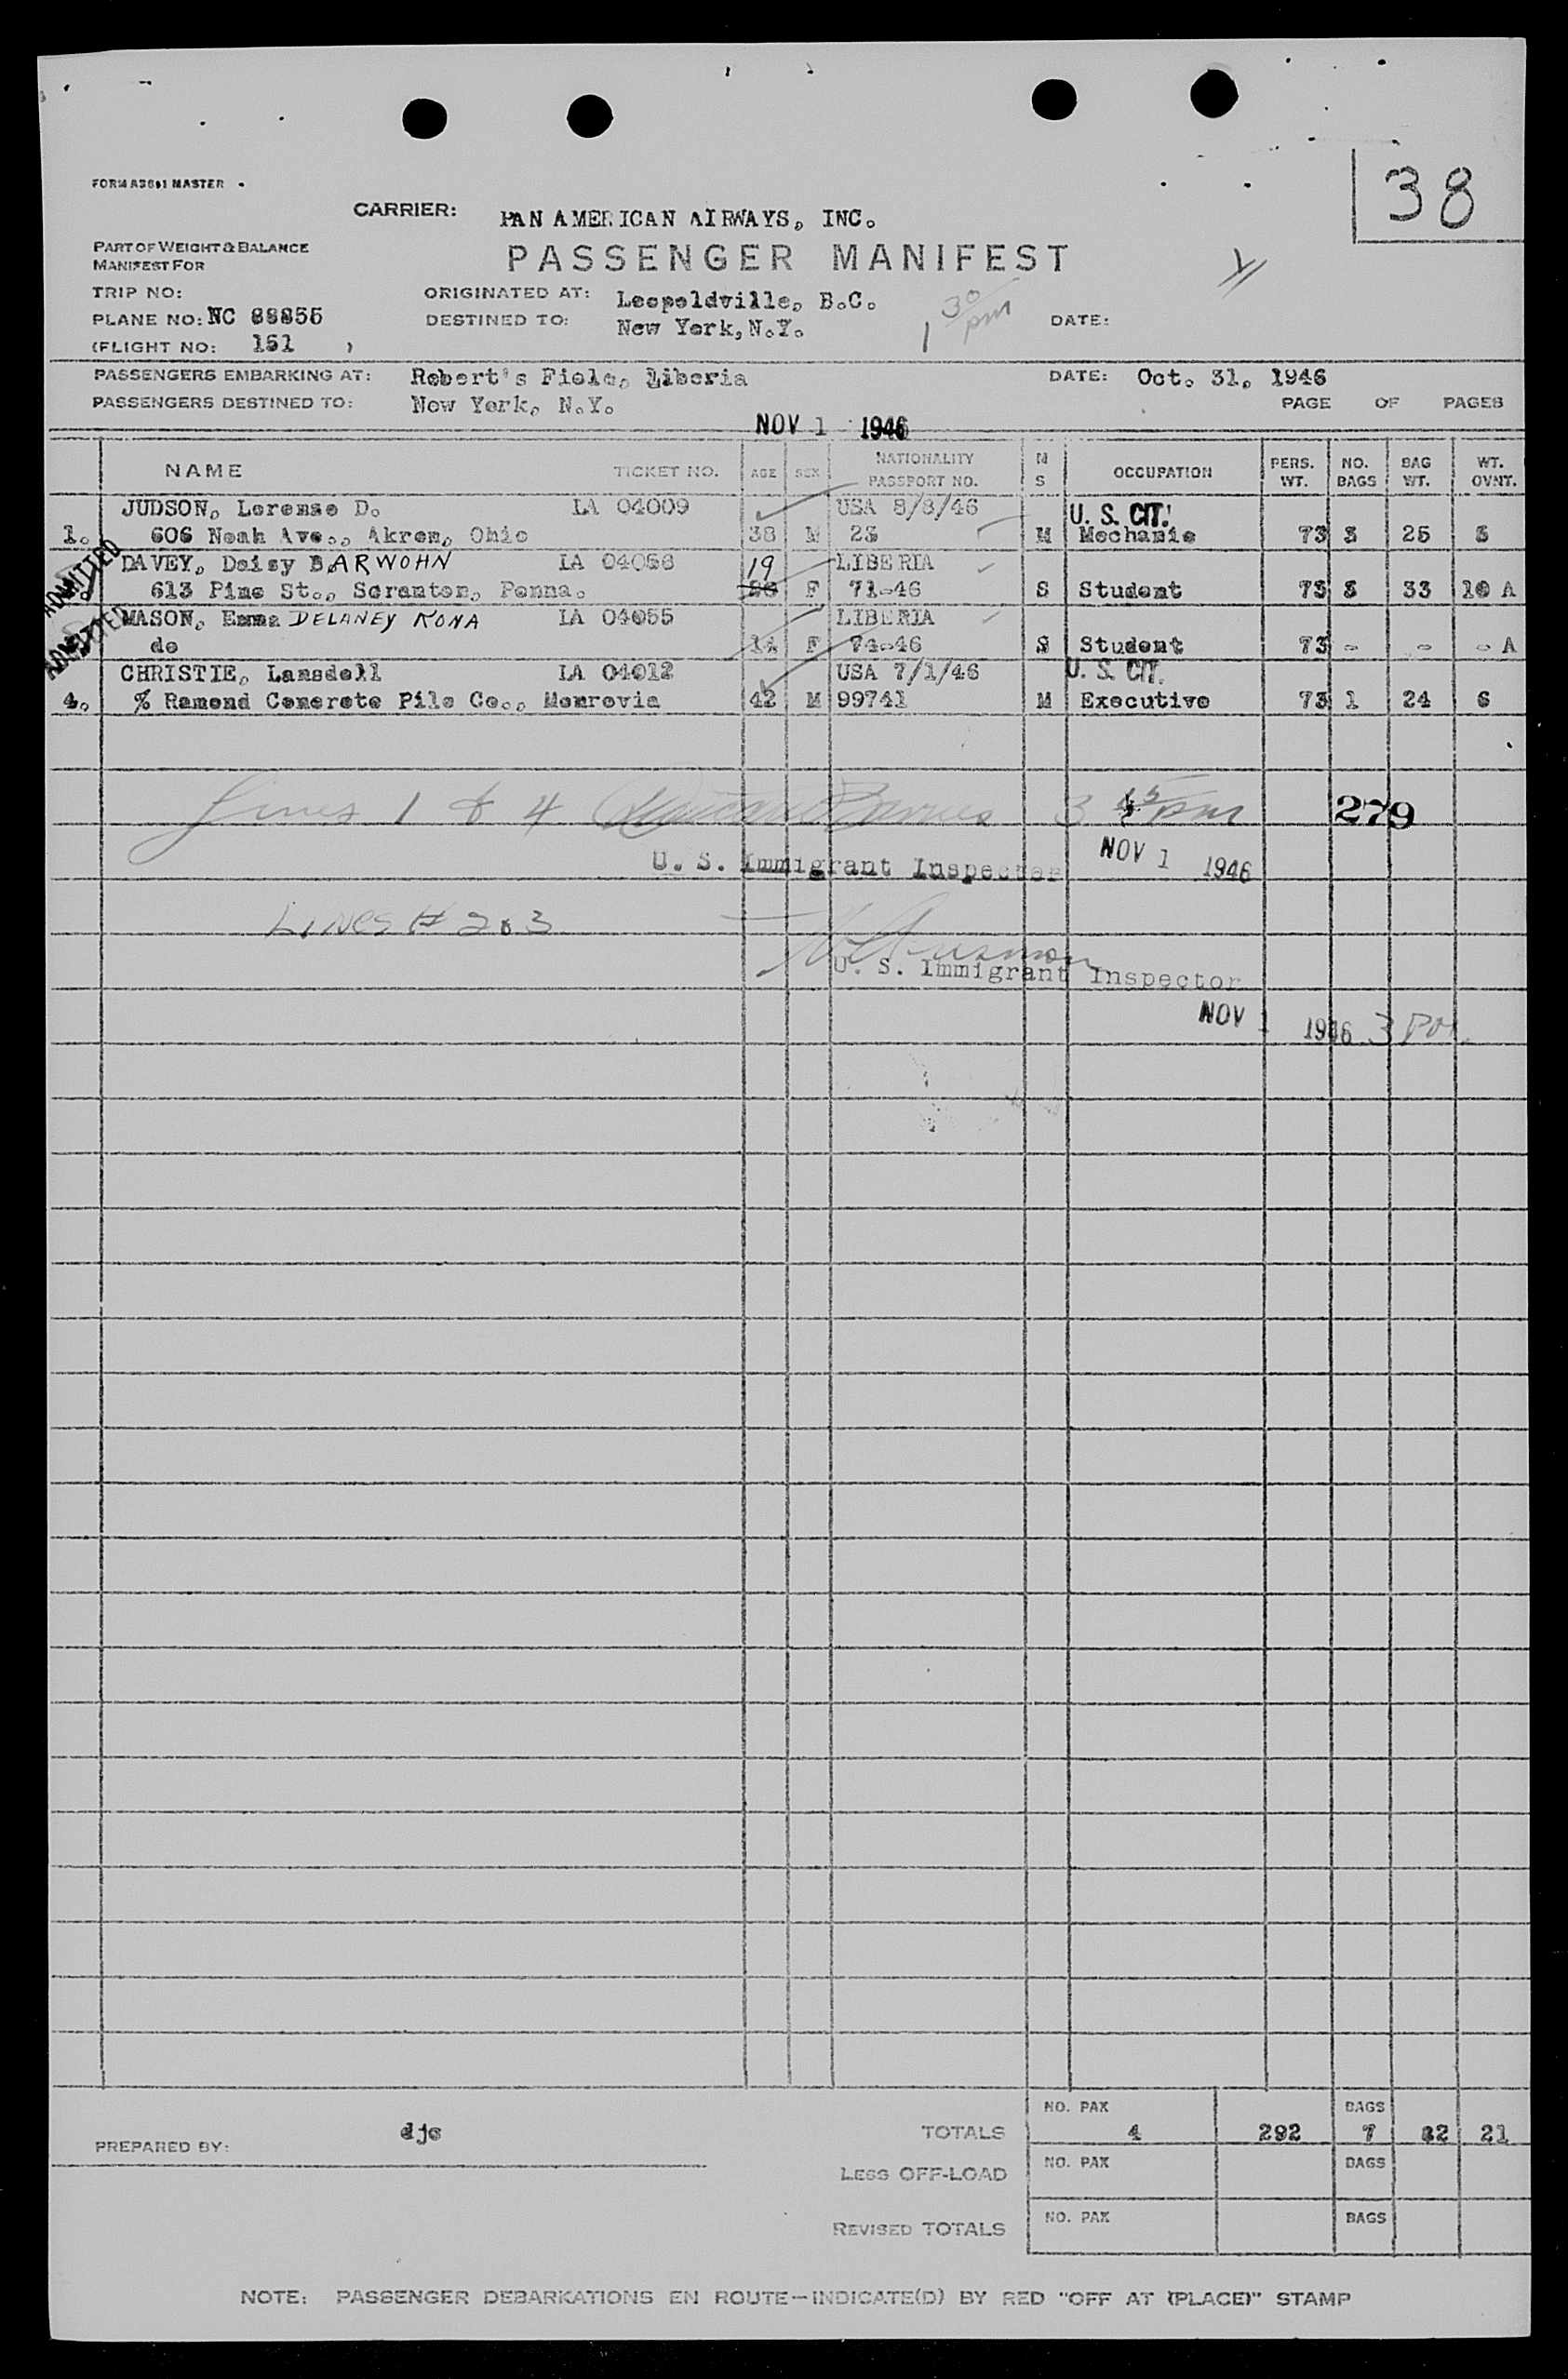 FORM A3691 MASTER
38
CARRIER: PAN AMERICAN AIRWAYS, INC.
PART OF WEIGHT & BALANCE
MANIFEST FOR
PASSENGER MANIFEST
TRIP NO:
ORIGINATED AT: Leopoldville, B.C.
1 30 pm
PLANE NO: NC 88855
DESTINED TO: New York, N.Y.
DATE:
(FLIGHT NO: 151 )
PASSENGERS EMBARKING AT: Robert's Field, Liberia DATE: Oct. 31, 1946
PASSENGERS DESTINED TO: New York, N.Y. PAGE OF PAGES
NOV 1 1946
NAME TICKET NO. AGE SEX NATIONALITY PASSPORT NO. M S OCCUPATION PERS. WT. NO. BAGS BAG WT. WT. OVNT.
JUDSON, Lorenso D. LA 04009 USA 8/8/46 U. S. CIT.
1. 606 Noah Ave., Akron, Ohio 38 M 23 M Mechanic 73 3 25 5
ADMITTED
DAVEY, Daisy BARWOHN LA 04056 19 LIBERIA
613 Pine St., Scranton, Penna. F 71-46 S Student 73 3 33 10 A
ADMITTED
MASON, Emma DELANEY KONA LA 04055 LIBERIA
do 14 F 74-46 S Student 73 - - - A
CHRISTIE, Lansdell LA 04012 USA 7/1/46 U. S. CIT.
4. % Ramond Concrete Pile Co., Monrovia 42 M 99741 M Executive 73 1 24 6
Lines 1 & 4 3 45 pm 279
U. S. Immigrant Inspector NOV 1 1946
LINES # 2 & 3
U. S. Immigrant Inspector
NOV 1 1946 3 PM.
NO. PAX BAGS
PREPARED BY: djc TOTALS 4 292 7 82 21
LESS OFF-LOAD NO. PAX BAGS
REVISED TOTALS NO. PAX BAGS
NOTE: PASSENGER DEBARKATIONS EN ROUTE—INDICATE(D) BY RED "OFF AT (PLACE)" STAMP